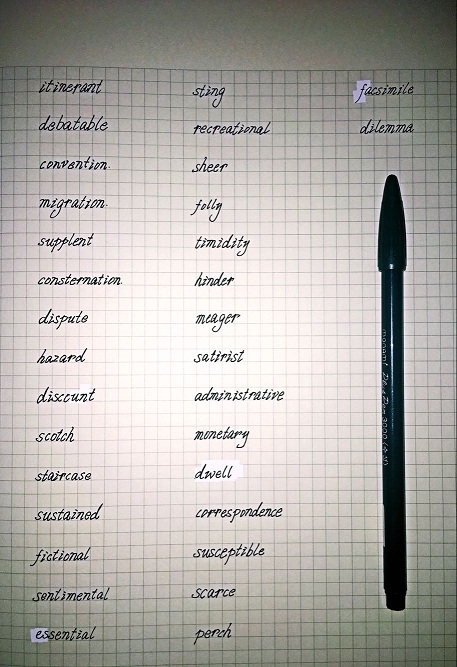 itinerant
debatable
convention
migration
supplent
consternation
dispute
hazard
discount
scotch
staircase
sustained
fictional
sentimental
essential
sting
recreational
sheer
folly
timidity
hinder
meager
satirist
administrative
monetary
dwell
correspondence
susceptible
scarce
perch
facsimile
dilemma